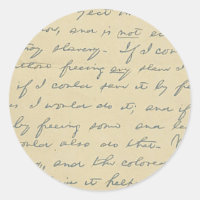 ject in
ion, and is not ei
roy slavery. If I coul
thout freeing any slave I
if I could save it by fre
I would do it; and if
by freeing some and lea
ould also do that. W
, and the colore
it help